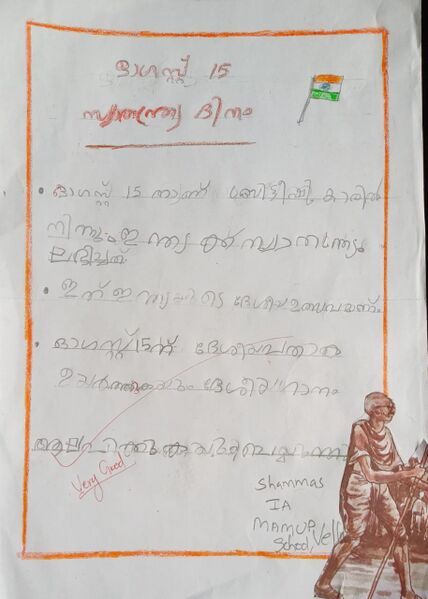 ഓഗസ്റ്റ് 15
സ്വാതന്ത്ര്യ ദിനം
• ഓഗസ്റ്റ് 15 നാണ് ബ്രിട്ടീഷുകാരിൽ
നിന്നും ഇന്ത്യക്ക് സ്വാതന്ത്ര്യം
ലഭിച്ചത്
• ഇത് ഇന്ത്യയുടെ ദേശീയ ഉത്സവമാണ്.
• ഓഗസ്റ്റ് 15ന് ദേശീയപതാക
ഉയർത്തുകയും ദേശീയഗാനം
ആലപിക്കുകയും ചെയ്യുന്നു
Very Good
Shammas
IA
MAMUP
School,